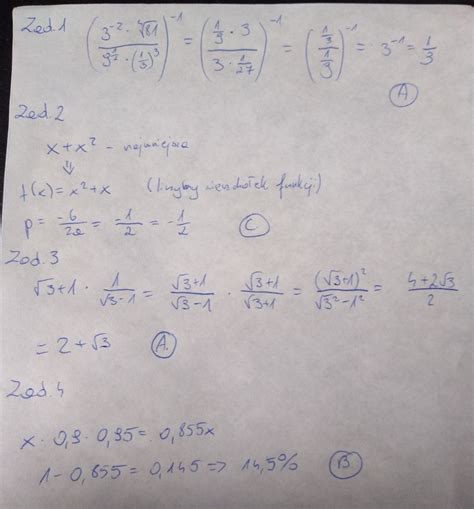 Zad.1 (3^-2 · ∜81 / 9^(1/2) · (1/3)^3)^-1 = (1/9 · 3 / 3 · 1/27)^-1 = (1/3 / 1/9)^-1 = 3^-1 = 1/3
(A)
Zad.2
x + x² - najmniejsze
⇓
f(x) = x² + x (liczymy wierzchołek funkcji)
p = -b/2a = -1/2 = -1/2 (C)
Zad.3
√3+1 · 1/(√3-1) = (√3+1)/(√3-1) · (√3+1)/(√3+1) = (√3+1)²/(√3²-1²) = (4+2√3)/2
= 2 + √3 (A.)
Zad.4
x · 0,9 · 0,95 = 0,855x
1 - 0,855 = 0,145 => 14,5% (B.)